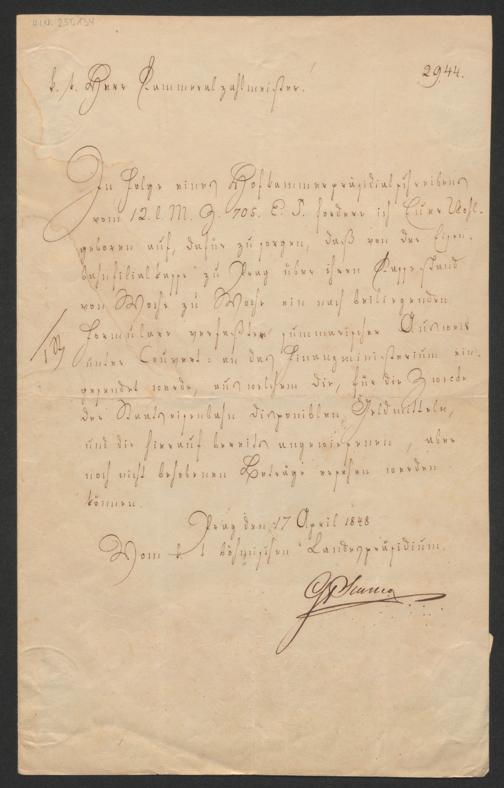 H.I.N. 250134
2944.
k. k. Herr Kammeralzahlmeister!
In Folge eines Hofkammerpräsidialschreibens
vom 12. l. M. Z. 705. E. P. fordere ich Euer Wohl-
geboren auf, dafür zu sorgen, daß von der Eisen-
bahnfilialkasse zu Prag über ihren Kasse-Stand
von Woche zu Woche ein nach beiliegenden
Formulare verfaßter summarischer Ausweis
unter Couvert an das Finanzministerium ein-
gesendet werde, aus welchem die, für die Zwecke
der Staatseisenbahn disponiblen Geldmitteln,
und die hierauf bereits angewiesenen, aber
noch nicht behobenen Beträge ersehen werden
können.
Prag den 17 April 1848
Vom k k böhmischen Landespräsidium.